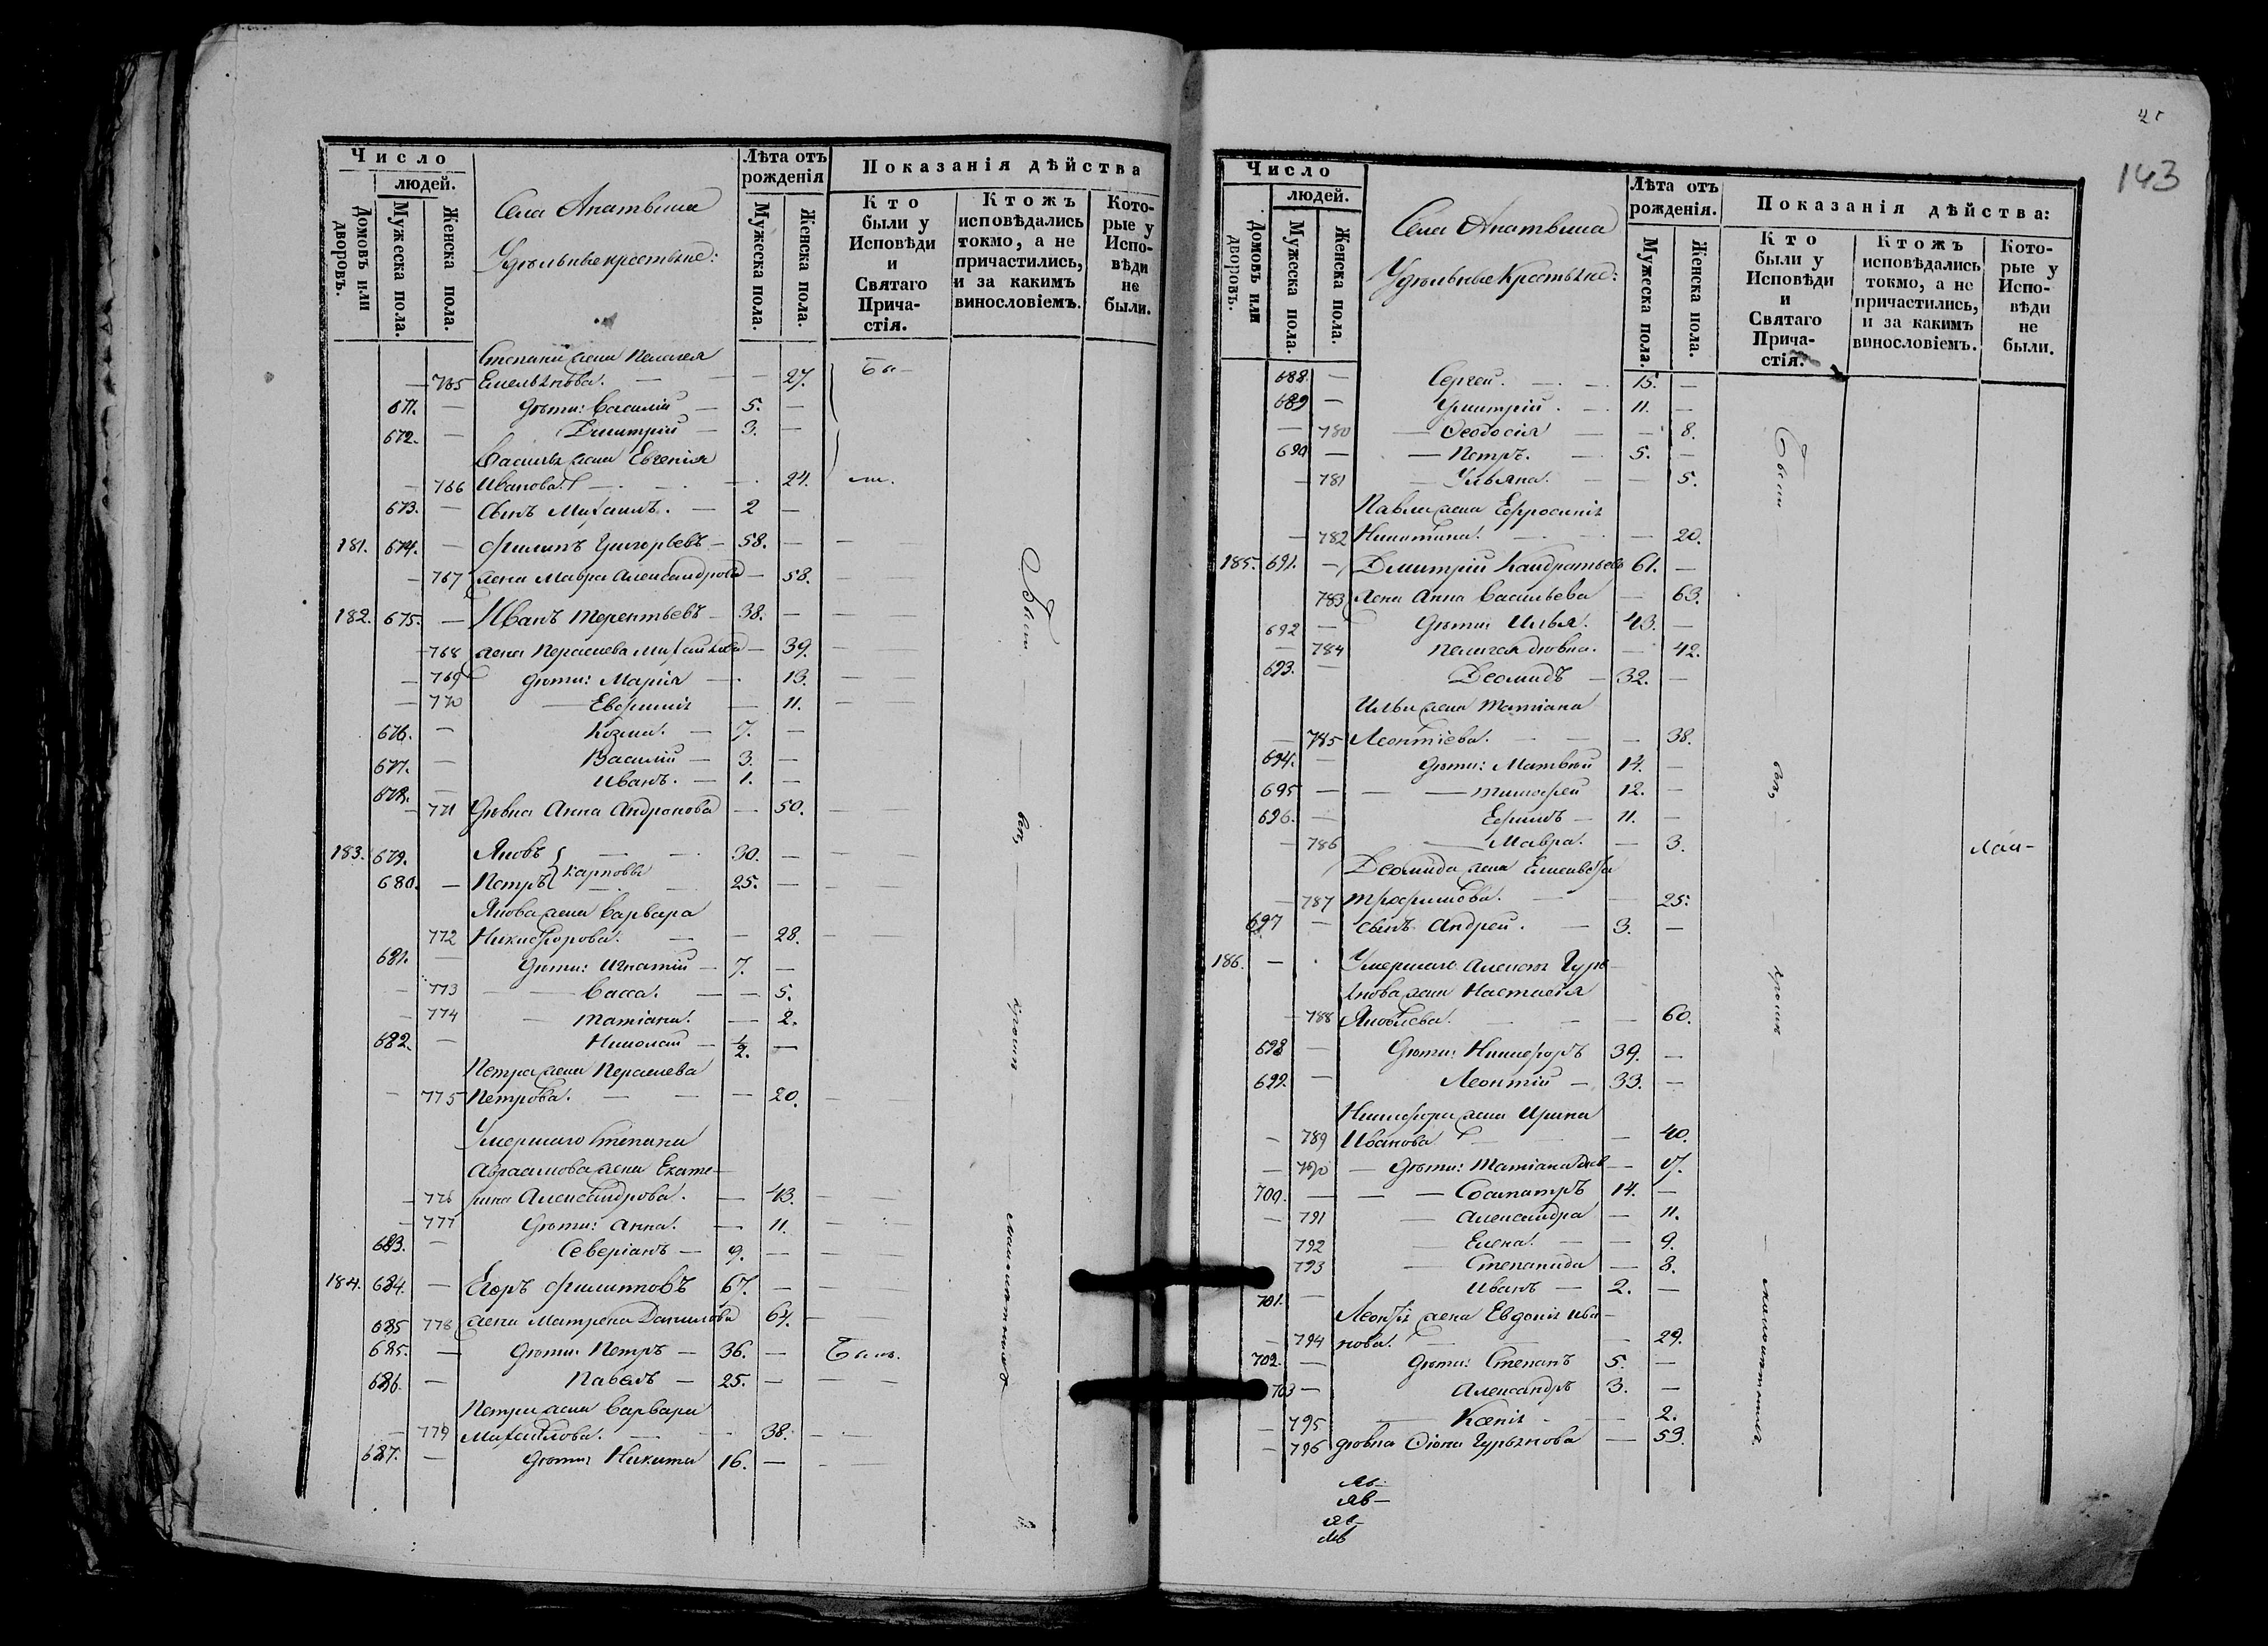 Число
людей.
Домовъ или дворовъ.
Мужеска пола.
Женска пола.
Села Апатьина
Удѣльные крестьяне:
Лѣта отъ рожденія
Мужеска пола.
Женска пола.
Показанія дѣйства
Кто были у Исповѣди и Святаго Причастія.
Ктожъ исповѣдались токмо, а не причастились, и за какимъ винословіемъ.
Которые у Исповѣди не были.
Степана жена Пелагея
— 765 Емельянова. — — 27.
671. — Дѣти: Василій — 5. —
672. — Дмитрій — 3. —
Василья жена Евгенія
— 766 Иванова. — 24.
673. — Сынъ Михаилъ. — 2 —
181. 674. — Филипъ Григорьевъ — 58. —
— 767 жена Мавра Александрова — 58.
182. 675. — Иванъ Терентьевъ — 38. —
— 768 жена Параскева Михайлова — 39.
— 769 Дѣти: Марія — 13.
— 770 — Евфимія — 11.
676. — Козма. — 7. —
677. — Василій — 3. —
678. — Иванъ. — 1. —
— 771 Дѣвка Анна Андронова — 50.
183. 679. Яковъ } — 30. —
680. — Петръ } Карповы 25. —
Якова жена Варвара
772 Никифорова. — — 28.
681. — Дѣти: Игнатій — 7. —
— 773 — Васса. — — 5.
— 774 — Татіана. — 2.
682. — Николай — ½. —
Петра жена Параскева
— 775 Петрова. — — 20.
Умершаго Степана
Авраамова жена Екате-
— 776 рина Александрова. — 43.
— 777 Дѣти: Анна. — 11.
683. — Северіанъ — 9. —
184. 684. — Егоръ Филиповъ 67. —
685 778 жена Матрена Данилова 64.
685. — Дѣти: Петръ — 36. — Былъ.
686. — Павелъ — 25. —
Петра жена Варвара
— 779 Михайлова. — 38.
687. — Дѣти: Никита 16. —
143
Число
людей.
Домовъ или дворовъ.
Мужеска пола.
Женска пола.
Села Апатьина
Удѣльные Крестьяне:
Лѣта отъ рожденія.
Мужеска пола.
Женска пола.
Показанія дѣйства:
Кто были у Исповѣди и Святаго Причастія.
Ктожъ исповѣдались токмо, а не причастились, и за какимъ винословіемъ.
Которые у Исповѣди не были.
688. — Сергей. — 15. —
689 — Дмитрій. — 11. —
— 780 — Феодосія — — 8.
690 — — Петръ. — 5. —
— 781 — Ульяна. — — 5.
Павла жена Ефросинія
— 782 Никитина. — 20.
185. 691. — Дмитрій Кандратьевъ 61. —
783 Жена Анна Васильева — 63.
692 — Дѣти: Илья. 43. —
— 784 Пелагея дѣвка. — 42.
693. — Деомидъ — 32. —
Ильи жена Татіана
— 785 Леонтіева. — — 38.
694. — Дѣти: Матвѣй 14. —
695 — — — Тимофей 12. —
696. — Ефимъ — 11. —
— 786 — Мавра. — 3.
Деомида жена Елисавета
— 787 Трофимова. — — 25.
697 — сынъ Андрей. — 3. —
186. — Умершаго Алексея Гурь-
янова жена Настасія
— 788 Яковлева. — — 60.
698 — Дѣти: Никифоръ 39. —
699. — Леонтій — 33. —
Никифора жена Ирина
— 789 Иванова — — 40.
— 790 — Дѣти: Татіана дѣв — 17.
700. — — — Сосипатръ 14. —
— 791 — Александра — 11.
792 — Елена. — — 9.
793 — Степанида — 8.
701. — Иванъ — 2. —
Леонтія жена Евдокія Ива-
— 794 нова. — — 29.
702. — Дѣти: Степанъ 5. —
703 — Александръ 3. —
— 795 — Ксенія — — 2.
— 796 дѣвка Фіона Гурьянова — 53.